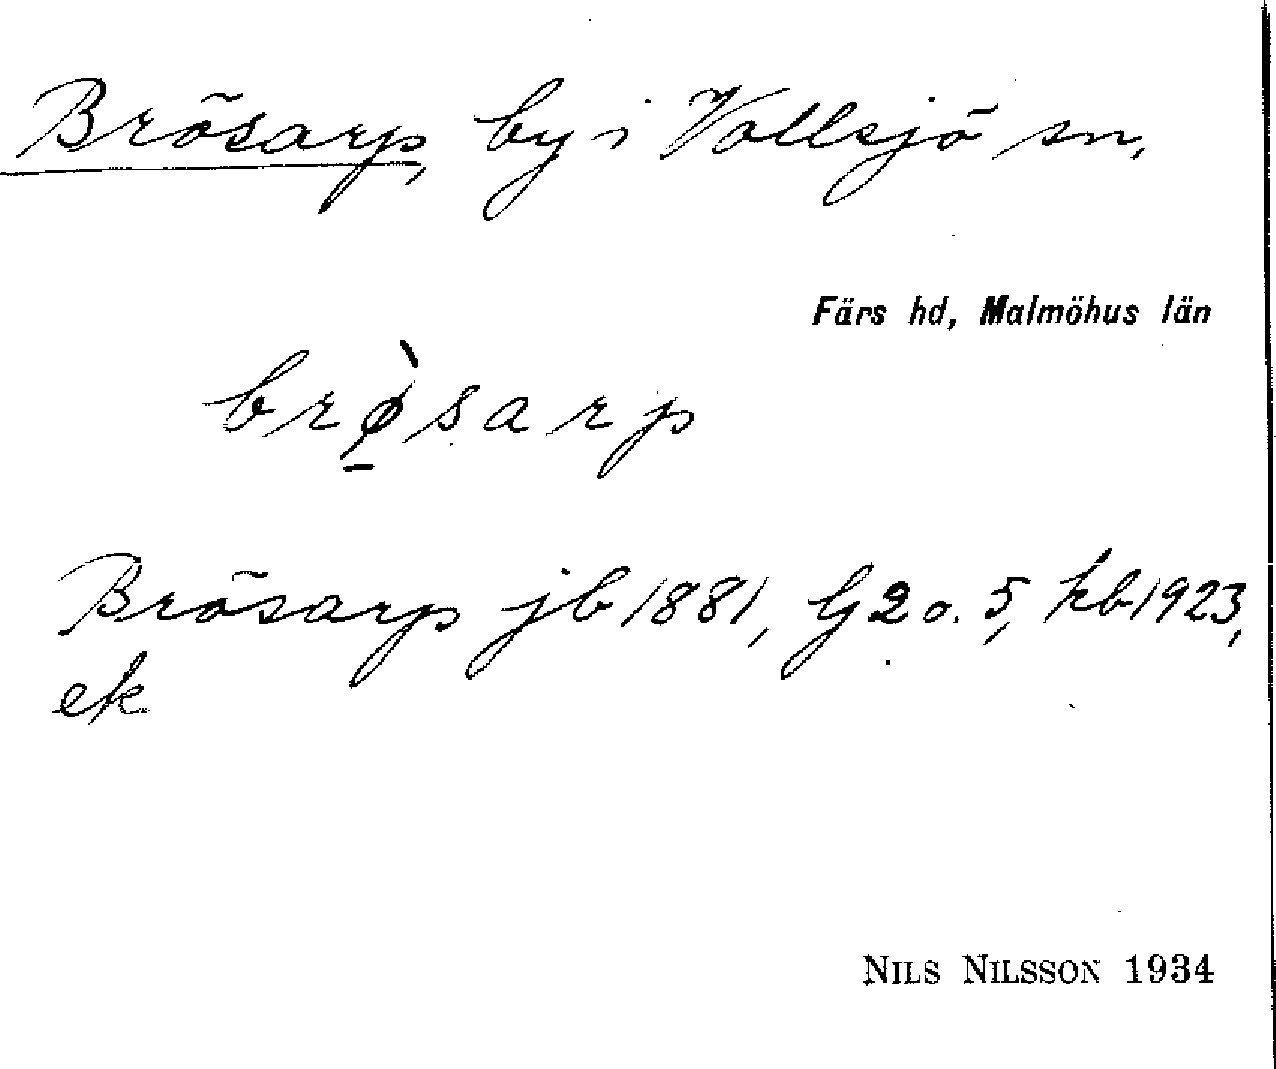 Brösarp, by i Vollsjö sn,
Färs hd, Malmöhus län
brø̱̀sarp
Brösarp jb 1881, G 2 o. 5, kb 1923,
ek
NILS NILSSON 1934